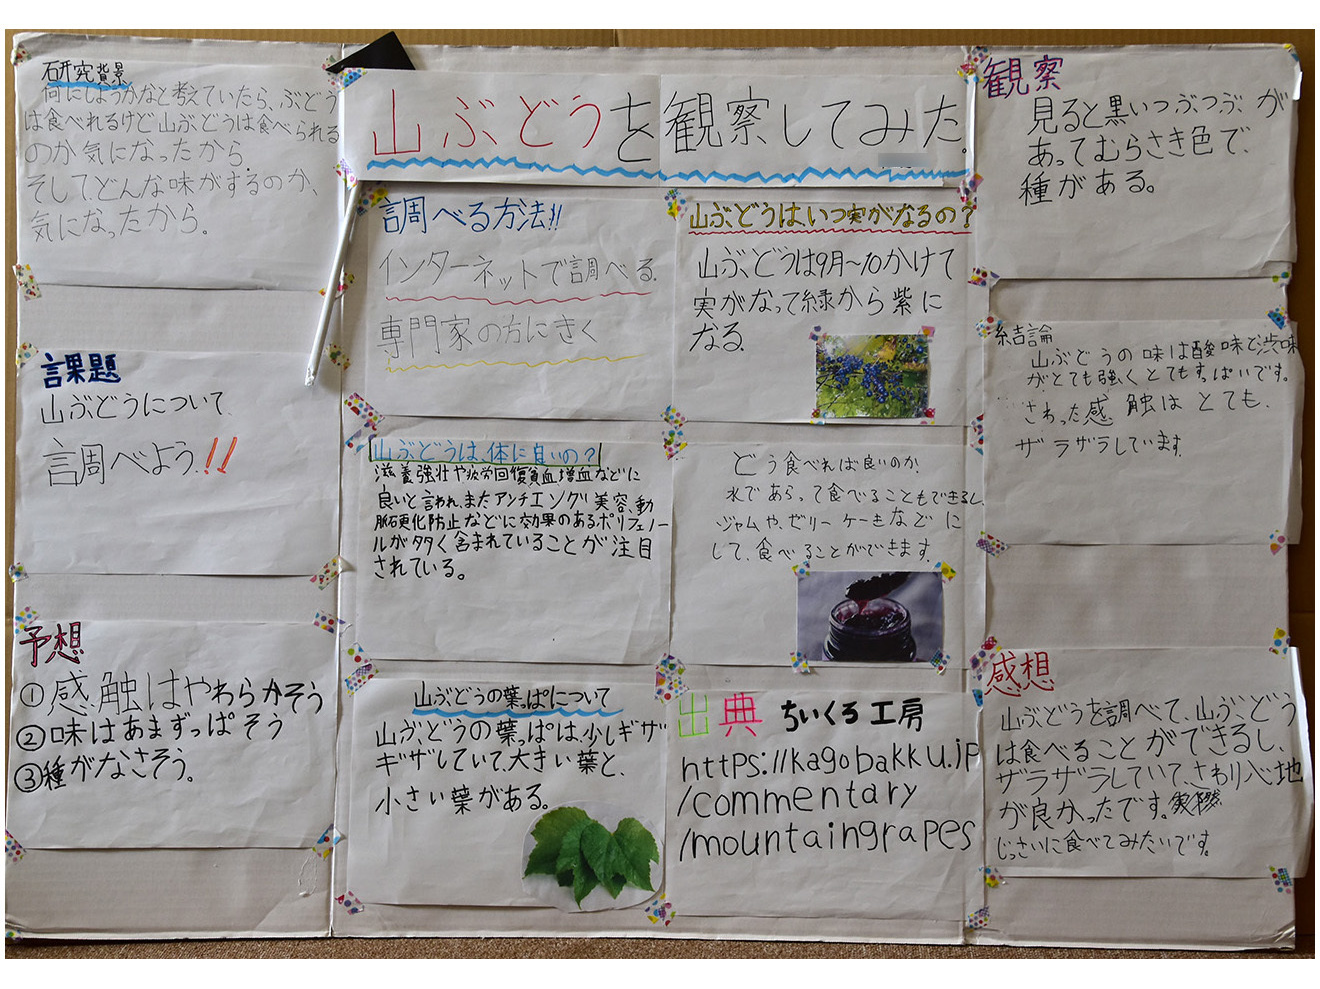 研究背景
何にしようかなと考えていたら、ぶどう
は食べれるけど山ぶどうは食べられる
のか気になったから。
そしてどんな味がするのか、
気になったから。
課題
山ぶどうについて
調べよう!!
予想
①感触はやわらかそう
②味はあまずっぱそう
③種がなさそう。
山ぶどうを観察してみた。
調べる方法!!
インターネットで調べる.
専門家の方にきく
山ぶどうは、いつ実がなるの?
山ぶどうは9月~10かけて
実がなって緑から紫に
なる.
山ぶどうは、体に良いの?
滋養強壮や疲労回復貧血増血などに
良いと言われ、またアンチエング美容、動
脈硬化防止などに効果のあるポリフェノー
ルが多く含まれていることが注目
されている。
どう食べれば良いのか.
水であらって食べることもできるし、
ジャムや、ゼリーケーキなどに
して、食べることができます.
山ぶどうの葉っぱについて
山ぶどうの葉っぱは、少しギザ
ギザしていて、大きい葉と、
小さい葉がある。
出典 ちいくろ工房
https://kagobakku.jp
/commentary
/mountaingrapes
観察
見ると黒いつぶつぶが
あってむらさき色で、
種がある。
結論
山ぶどうの味は酸味と渋味
がとても強くとてもすっぱいです。
さわった感触はとても、
ザラザラしています.
感想
山ぶどうを調べて、山ぶどう
は食べることができるし、
ザラザラしていて、さわり心地
が良かったです。
じっさいに食べてみたいです。